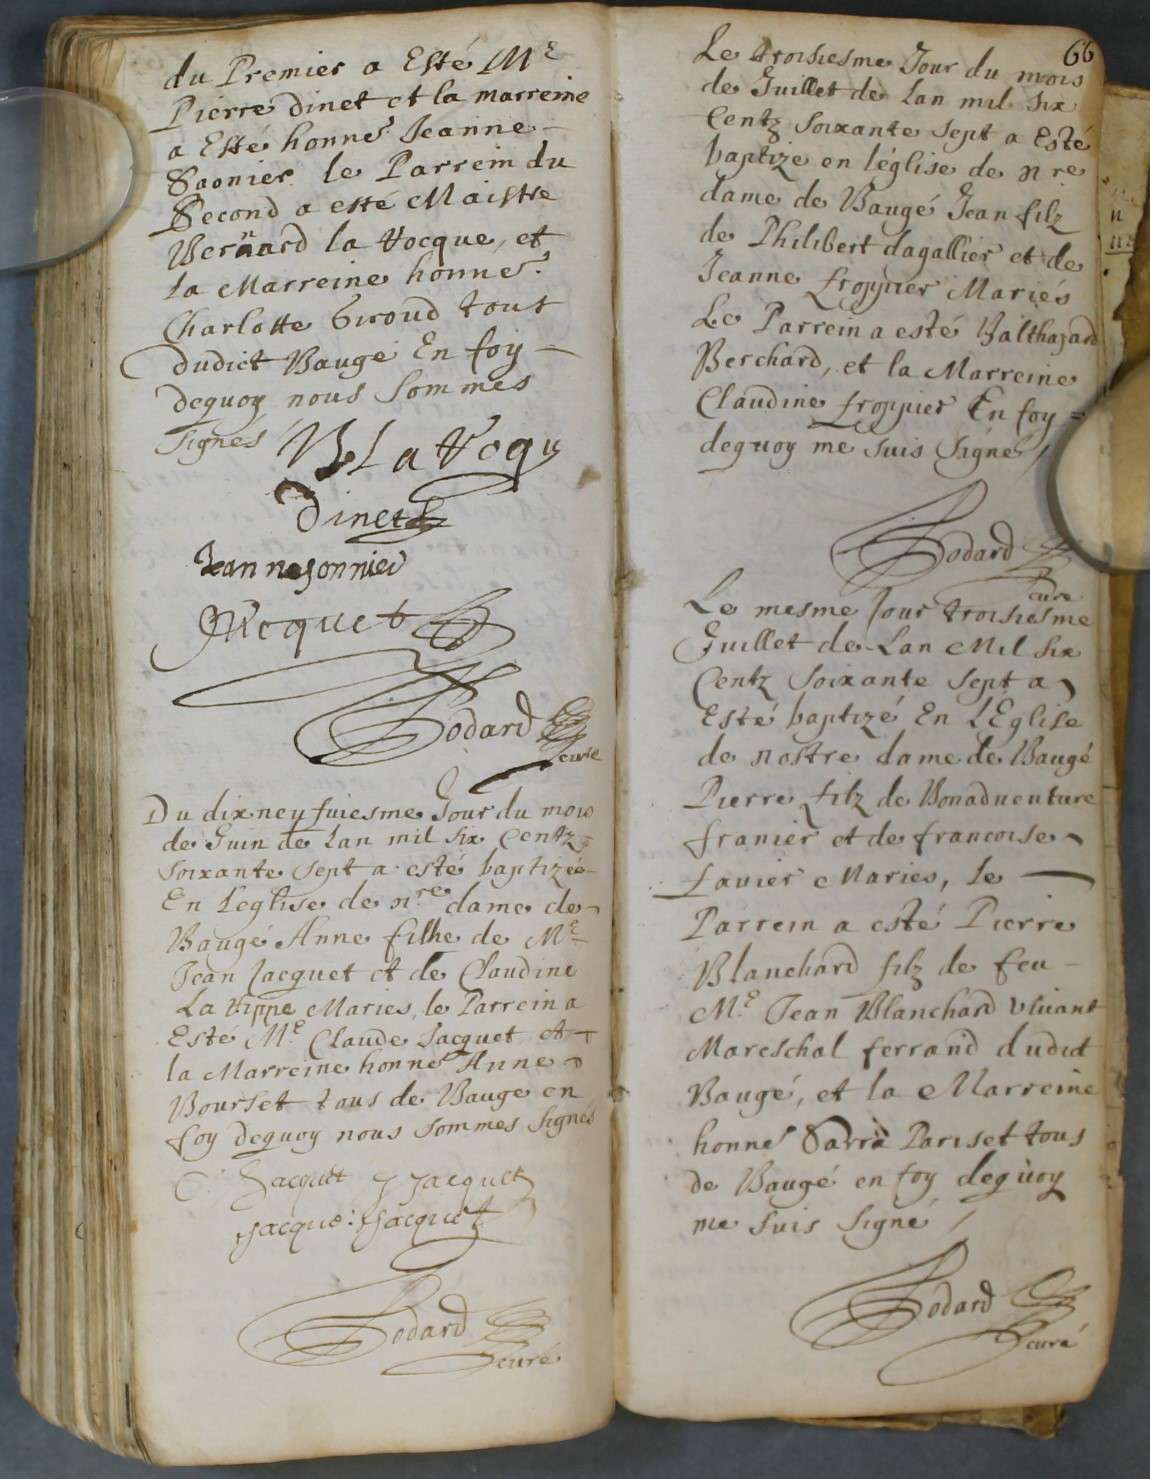 du Premier a Esté Mᵉ
Pierre Dinet et la marreine
a Esté honneˢ Jeanne
Saonier le Parrein du
Second a esté Maistre
Bernard la Vocque, et
la Marreine honneˢ
Charlotte Giroud tout
dudict Baugé En foy
dequoy nous Sommes
Signés
B La Vocqu
Dinet
Jeanne sonnier
Jacquet
Bodard
curé
Du dixneufuiesme Jour du mois
de Juin de Lan mil six Centz
Soixante Sept a esté baptizée
En Leglise de nʳᵉ dame de
Baugé Anne fillie de Mᵉ
Jean Jacquet et de Claudine
La Vippe Mariés, le Parrein a
Esté Mᵉ Claude Jacquet et
la Marreine honneˢ Anne
Bourset tous de Bauge en
foy dequoy nous Sommes Signés
C Jacquet J Jacquet
Jacque Jacquet
Bodard
curé
66
Le troisiesme Jour du mois
de Juillet de Lan mil six
Centz Soixante Sept a Esté
baptizé en léglise de nʳᵉ
dame de Baugé Jean filz
de Philibert dagallier et de
Jeanne froppier Mariés
Le Parrein a esté Balthazard
Berchard, et la Marreine
Claudine froppier En foy
dequoy me suis Signé
Bodard
curé
Le mesme Jour troisiesme
Juillet de Lan Mil Six
Centz Soixante Sept a
Esté baptizé En LEglise
de nostre dame de Baugé
Pierre filz de Bonaduenture
franier et de francoise
fauier Mariés, le
Parrein a esté Pierre
Blanchard filz de feu
Mᵉ Jean Blanchard viuant
Mareschal ferrand dudict
Baugé, et la Marreine
honneˢ Sarra Pariset tous
de Baugé en foy dequoy
me suis Signé
Bodard
curé